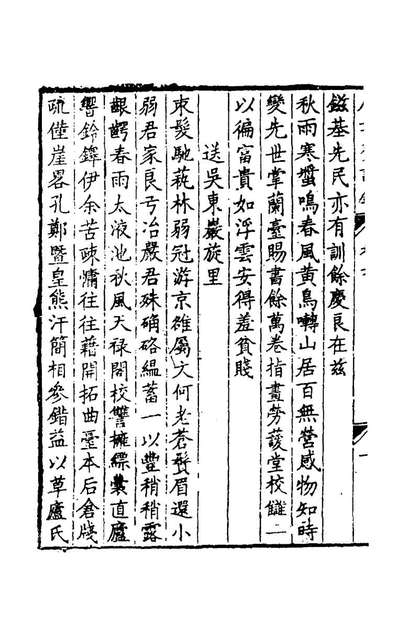 鎡基先民亦有訓餘慶良在茲
秋雨寒螿鳴春風黃鳥囀山居百無營感物知時
變先世掌蘭臺賜書餘萬卷指畫勞護堂校讎二
以徧富貴如浮雲安得羞貧賤
送吳東巖旋里
束髮馳藝林弱冠游京雒屬文何老蒼鬢眉還小
弱君家良弓冶嚴君殊确硌縕蓄一以豐稍稍露
齦齶春雨太液池秋風天祿閣校讐擁縹囊直廬
響鈴鐸伊余苦疎慵往往藉開拓曲臺本后倉牋
疏僅崖畧孔鄭暨皇熊汗簡相參錯益以草廬氏